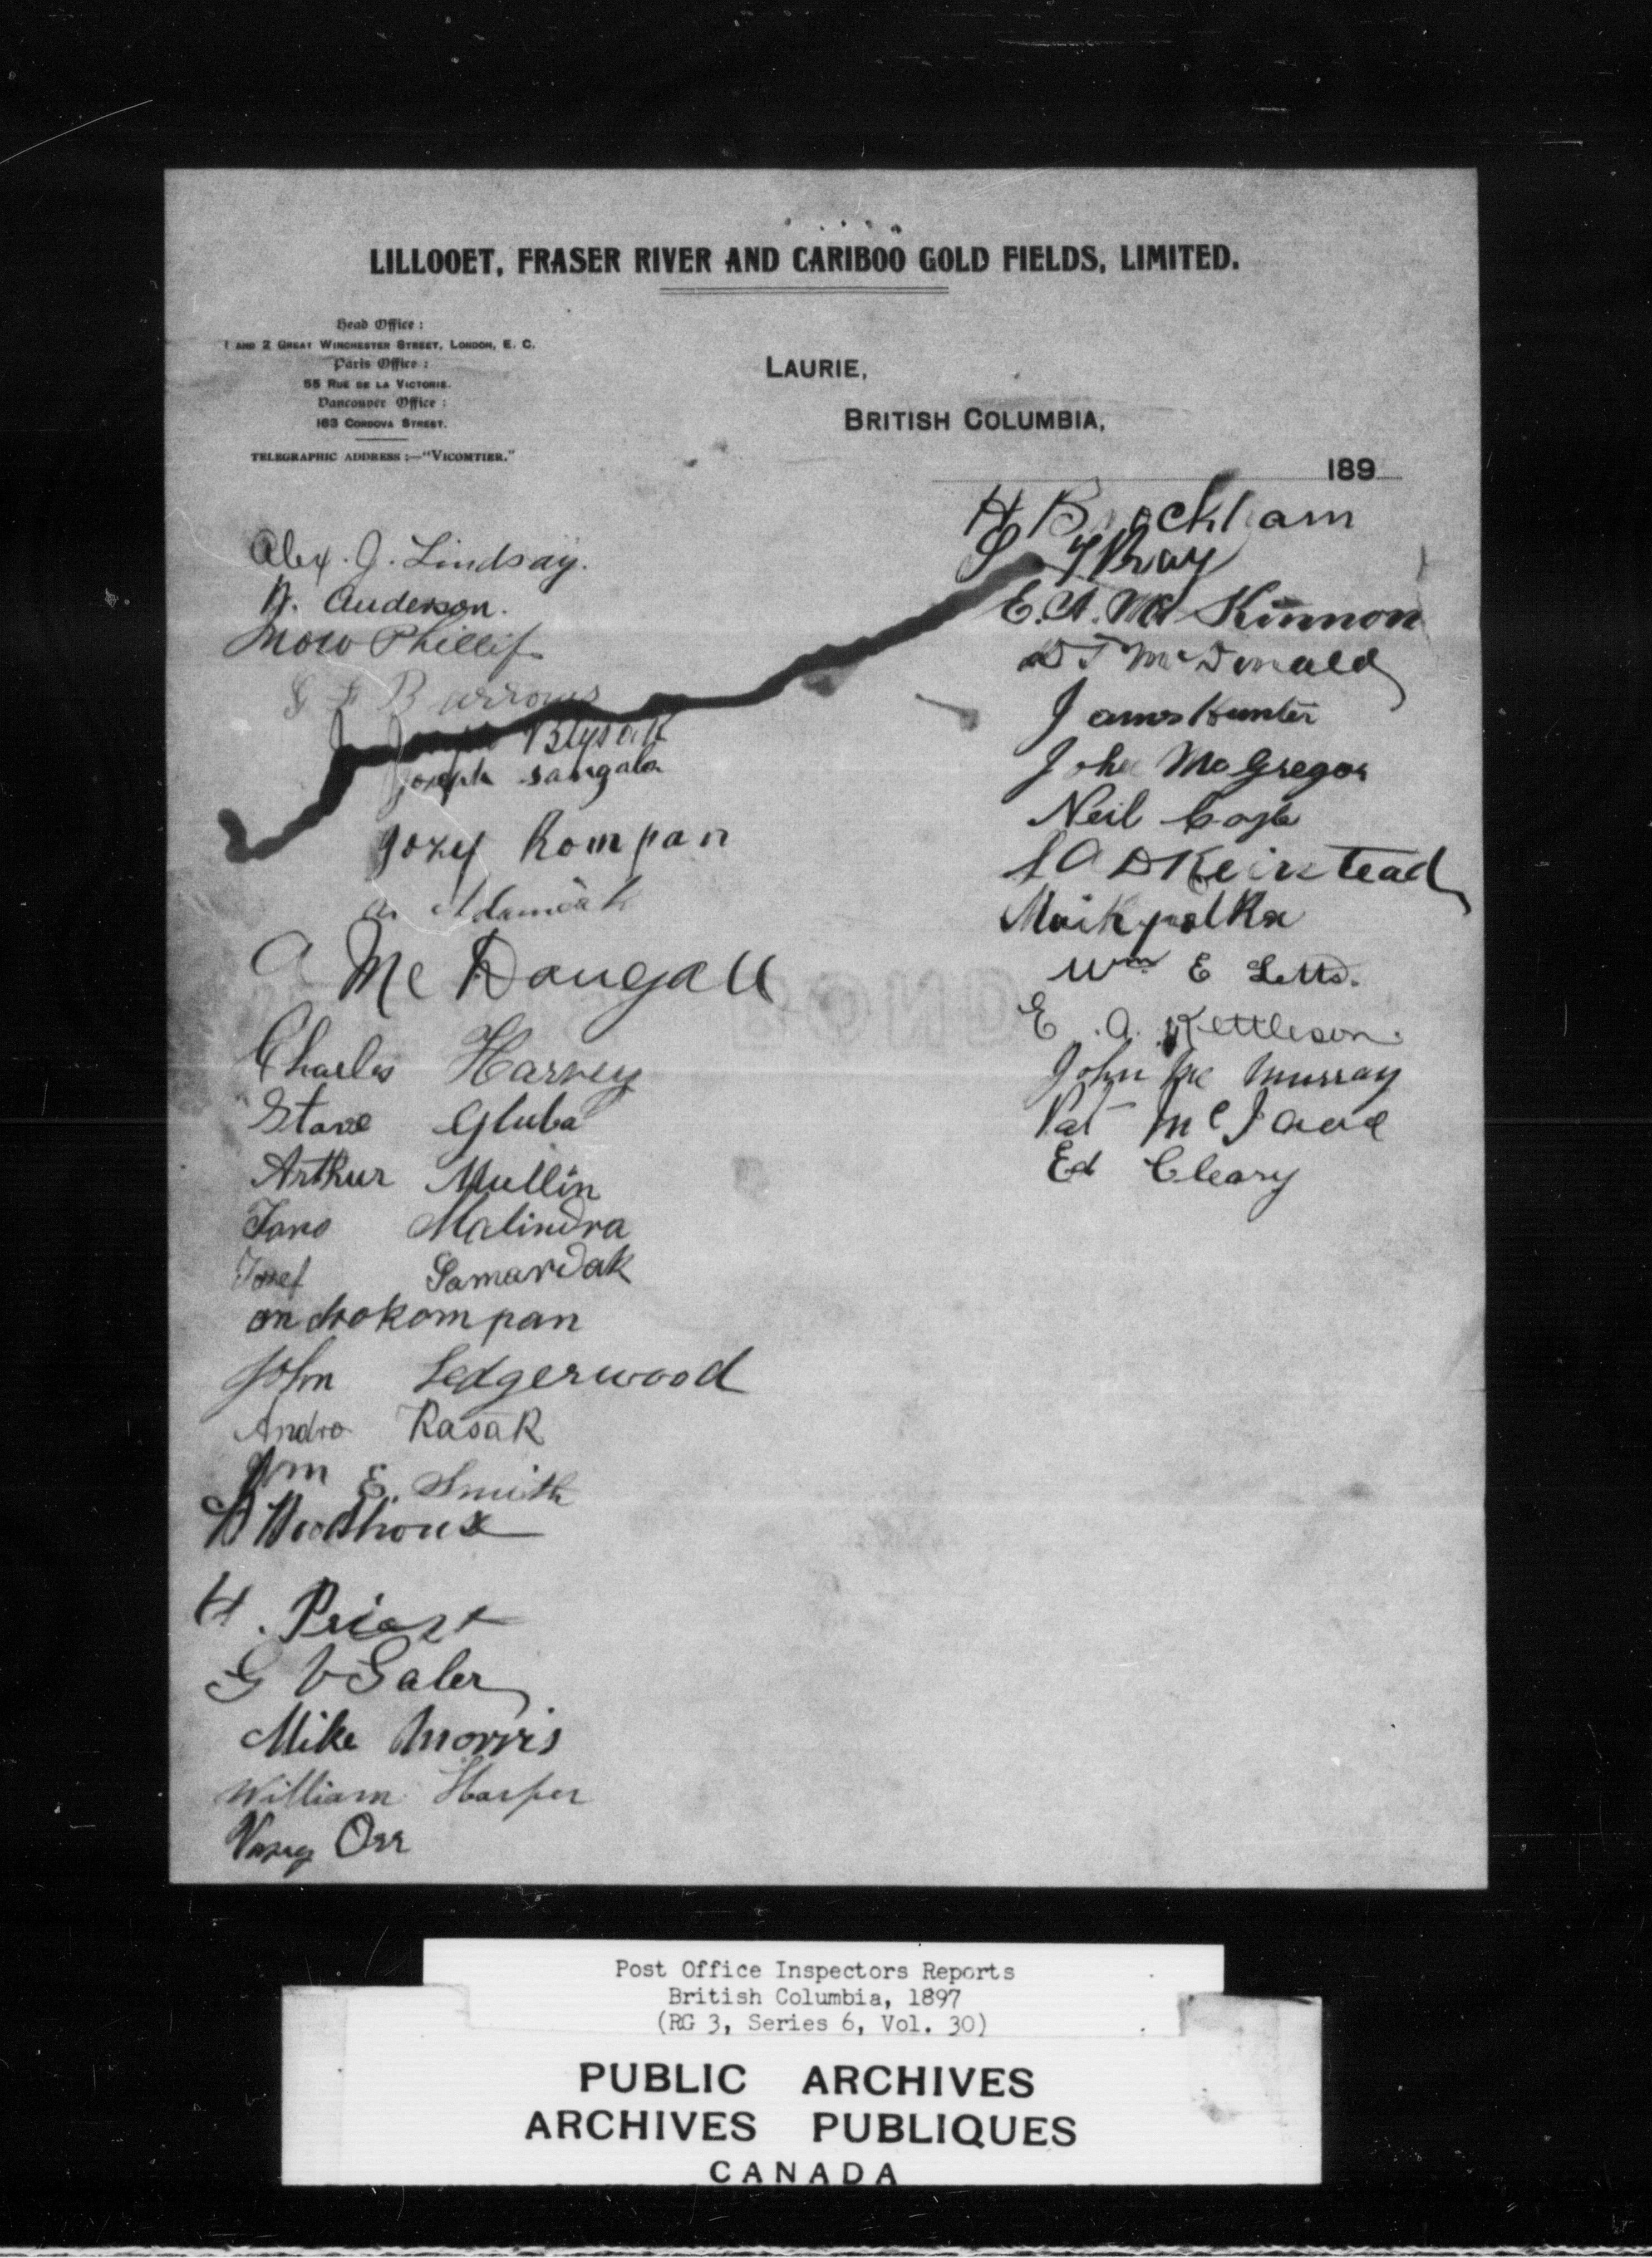 LILLOOET, FRASER RIVER AND CARIBOO GOLD FIELDS, LIMITED.
Head Office :
1 AND 2 GREAT WINCHESTER STREET, LONDON, E. C.
Paris Office :
55 RUE DE LA VICTOIRE.
Vancouver Office :
163 CORDOVA STREET.
TELEGRAPHIC ADDRESS :—"VICOMTIER."
LAURIE,
BRITISH COLUMBIA,
189
Alex. J. Lindsay.
N. Anderson.
Phillip
Barrows
Blysak
Joseph sangala
Jozef Kompan
Adamcak
A Mc Dougall
Charles Harvey
Stave Gluba
Arthur Mullin
Jano Malindra
Josef Samardak
androkompan
John Ledgerwood
Andro Kasak
E. Smith
Woodhouse
H. Priest
G V Galer
Mike Morris
William Harper
Orr
H
Bray
E. A. Mc Kinnon
D T McDonald
James Hunter
John McGregor
Neil
Keirstead
Maik polka
Wm E Letts.
E. A. Kettleson.
John Mc Murray
Pat
Ed Cleary
Post Office Inspectors Reports
British Columbia, 1897
(RG 3, Series 6, Vol. 30)
PUBLIC ARCHIVES
ARCHIVES PUBLIQUES
CANADA